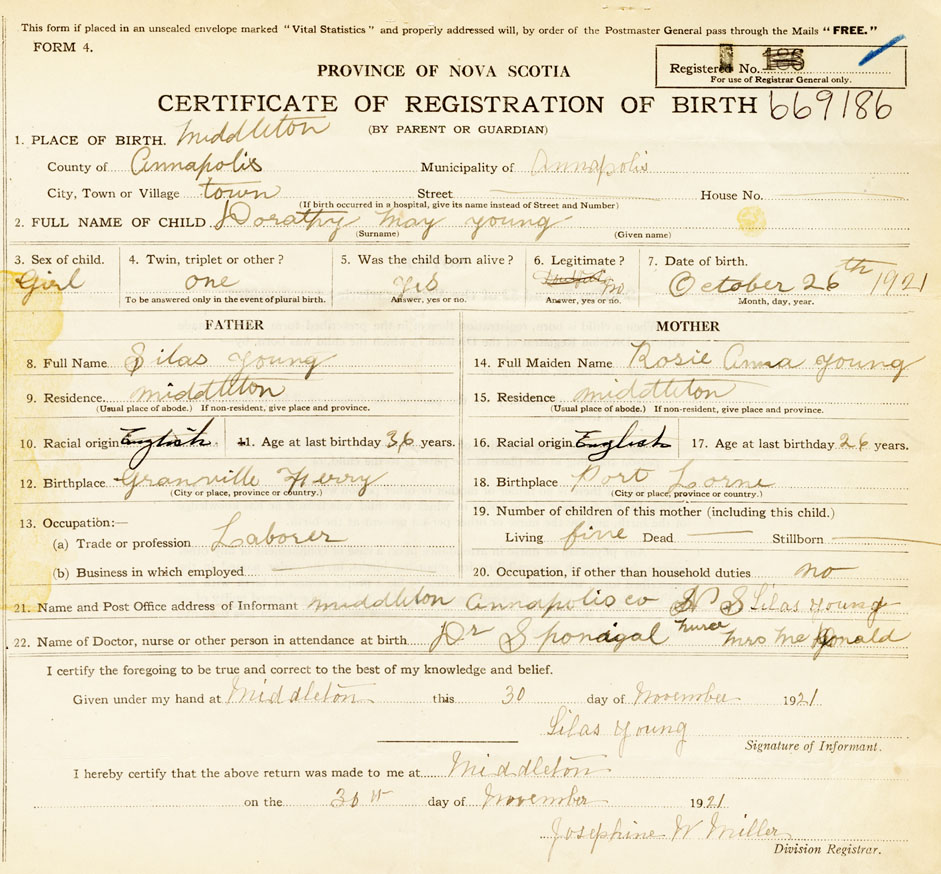 This form if placed in an unsealed envelope marked "Vital Statistics" and properly addressed will, by order of the Postmaster General pass through the Mails "FREE."
FORM 4.
PROVINCE OF NOVA SCOTIA
Registered No. 186
For use of Registrar General only.
CERTIFICATE OF REGISTRATION OF BIRTH 669186
(BY PARENT OR GUARDIAN)
1. PLACE OF BIRTH. Middleton
County of Annapolis Municipality of Annapolis
City, Town or Village town Street House No.
(If birth occurred in a hospital, give its name instead of Street and Number)
2. FULL NAME OF CHILD Dorathy May Young
(Surname) (Given name)
3. Sex of child. 4. Twin, triplet or other? 5. Was the child born alive? 6. Legitimate? 7. Date of birth.
Girl one yes no October 26th 1921
To be answered only in the event of plural birth. Answer, yes or no. Answer, yes or no. Month, day, year.
FATHER MOTHER
8. Full Name Silas Young 14. Full Maiden Name Rosie Anna Young
9. Residence. Middleton 15. Residence middleton
(Usual place of abode.) If non-resident, give place and province. (Usual place of abode.) If non-resident, give place and province.
10. Racial origin English 11. Age at last birthday 36 years. 16. Racial origin English 17. Age at last birthday 26 years.
12. Birthplace Granville Ferry 18. Birthplace Port Lorne
(City or place, province or country.) (City or place, province or country.)
13. Occupation:— 19. Number of children of this mother (including this child.)
(a) Trade or profession Laborer Living five Dead Stillborn
(b) Business in which employed 20. Occupation, if other than household duties no
21. Name and Post Office address of Informant middleton annapolis co N S Silas Young
22. Name of Doctor, nurse or other person in attendance at birth Dr Sponagal nurse Mrs Mc Donald
I certify the foregoing to be true and correct to the best of my knowledge and belief.
Given under my hand at Middleton this 30 day of November 1921
Silas Young
Signature of Informant.
I hereby certify that the above return was made to me at Middleton
on the 30th day of November 1921
Josephine W Miller
Division Registrar.